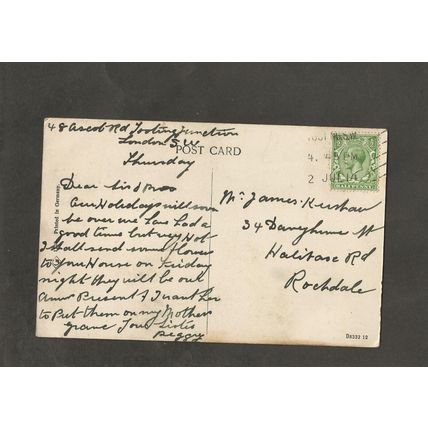 48 Ascot Rd Tooting Junction
London S.W
Thursday
POST CARD
Dear
Our Holidays will soon
be over we have had a
good time but very Hot
I shall send some flowers
to your House on Friday
night they will be out
Present I want her
to Put them on my Mother
grave Your Sister
Mr James Kershaw
34 St
Halifax Rd
Rochdale
Printed in Germany.
HALFPENNY
S.W
4.
2 JUL 14
D8332 12